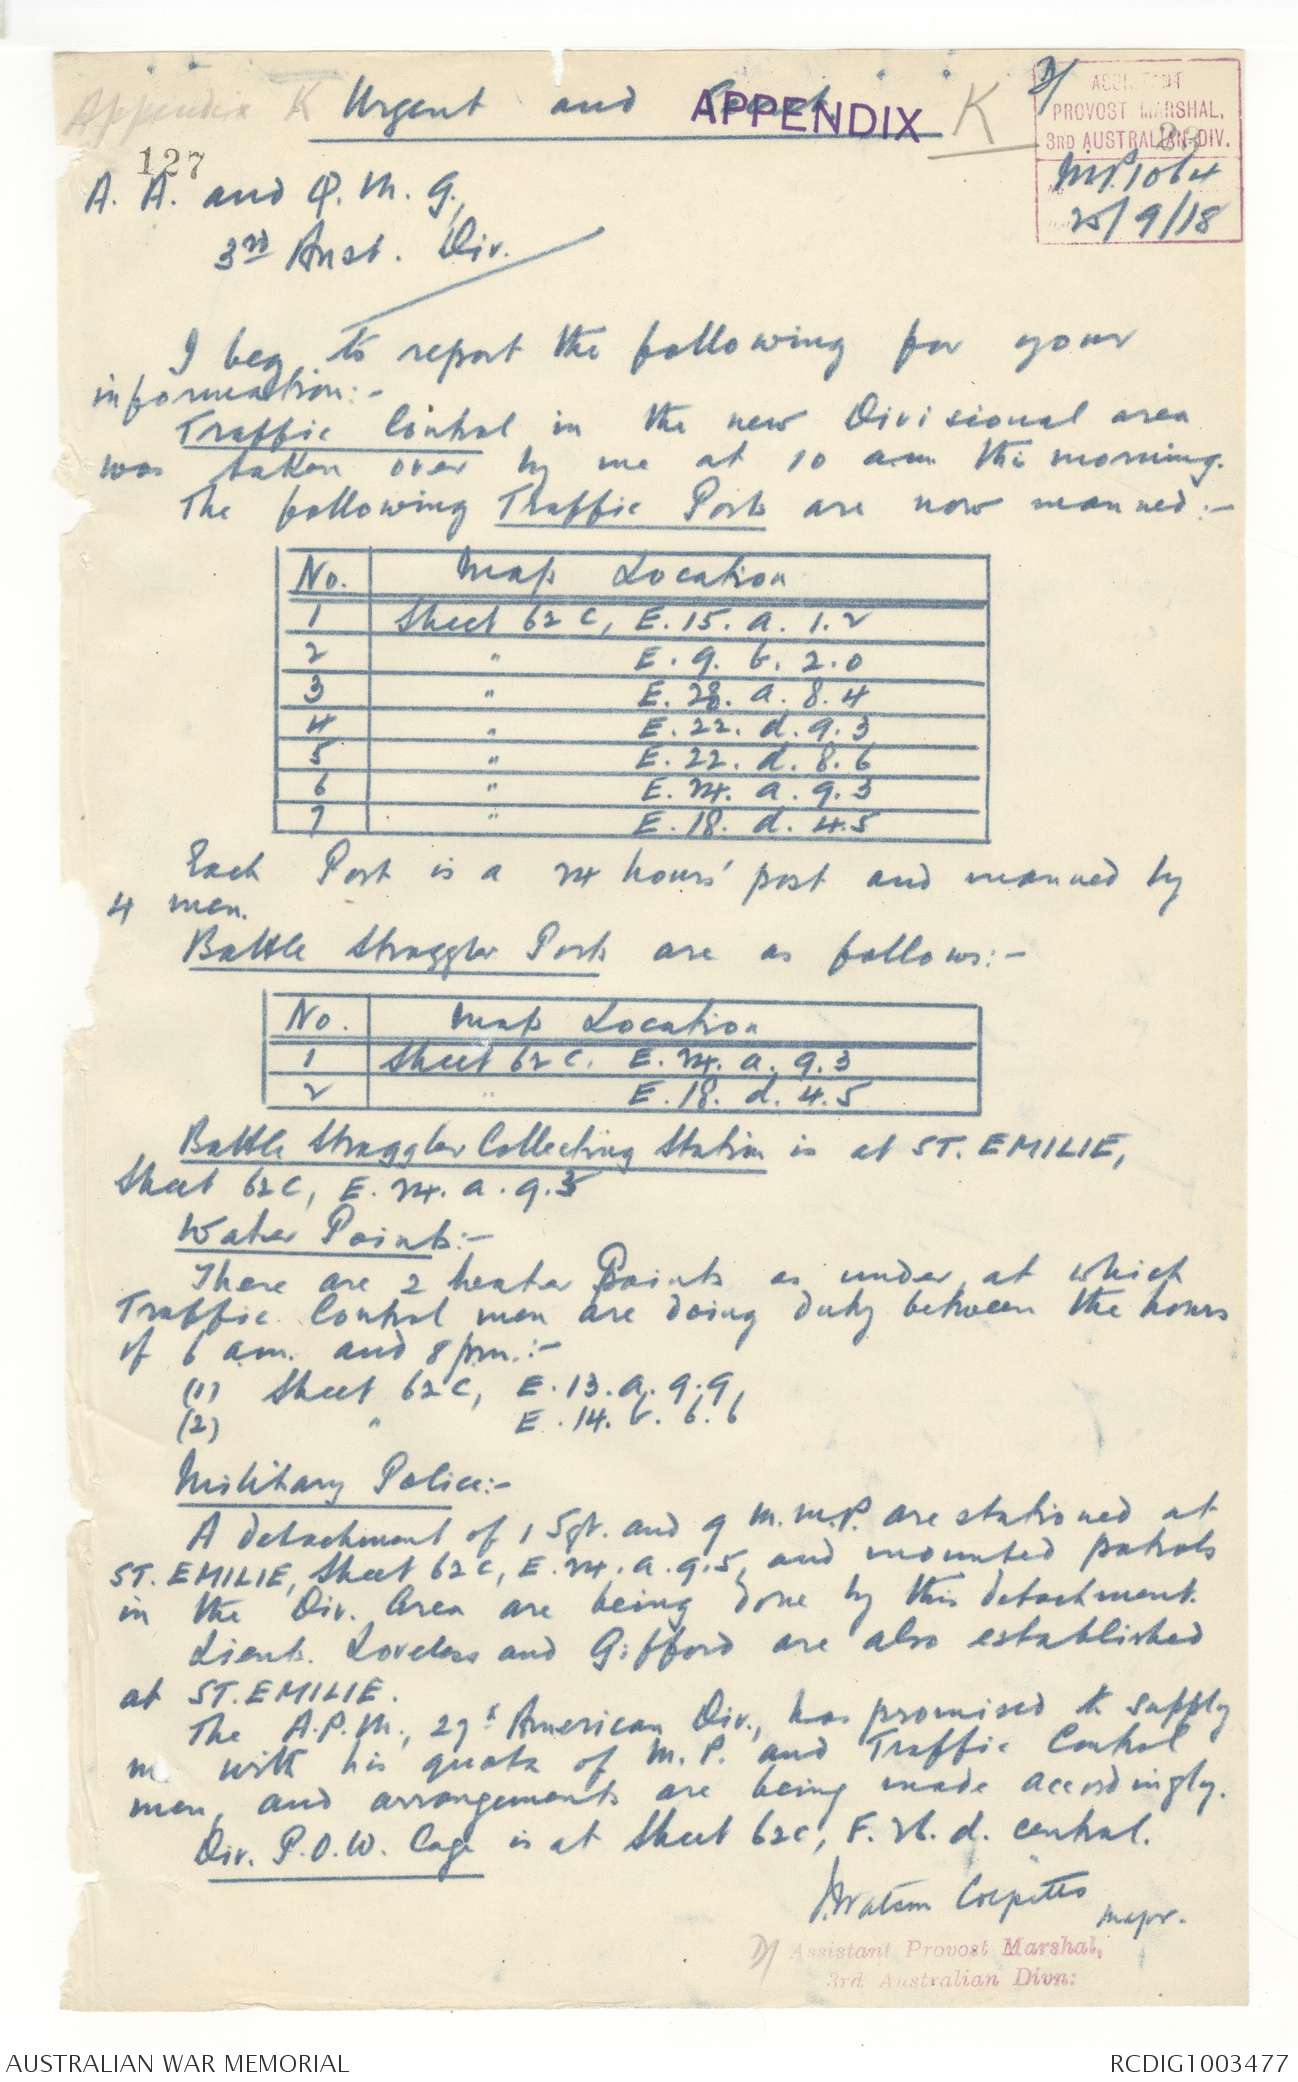 Appendix K Urgent and Secret APPENDIX K
D/ ASSISTANT
PROVOST MARSHAL,
3RD AUSTRALIAN DIV.
M.P.1064
25/9/18
127
A. A. and Q. M. G.,
3rd Aust. Div.
I beg to report the following for your
information:-
Traffic Control in the new Divisional area
was taken over by me at 10 a.m. this morning.
The following Traffic Posts are now manned:-
No. Map Location
1 Sheet 62 C, E. 15. a. 1.2
2 " E. 9. b. 2.0
3 " E. 28. a. 8.4
4 " E. 22. d. 9.3
5 " E. 22. d. 8.6
6 " E. 24. a. 9.3
7 " E. 18. d. 4.5
Each Post is a 24 hours' post and manned by
4 men.
Battle Straggler Posts are as follows:-
No. Map Location
1 Sheet 62 C. E. 24. a. 9.3
2 " E. 18. d. 4.5
Battle Straggler Collecting Station is at ST. EMILIE,
Sheet 62C, E. 24. a. 9.5
Water Points:-
There are 2 Water Points as under, at which
Traffic Control men are doing duty between the hours
of 6 a.m. and 8 p.m.:-
(1) Sheet 62 C, E. 13. a. 9.9,
(2) " E. 14. b. 6.6
Military Police:-
A detachment of 1 Sgt. and 9 M.M.P. are stationed at
ST. EMILIE, Sheet 62 C, E. 24. a. 9.5, and mounted patrols
in the Div. Area are being done by this detachment.
Lieuts. Loveless and Gifford are also established
at ST. EMILIE.
The A.P.M., 27th American Div., has promised to supply
me with his quota of M.P. and Traffic Control
men, and arrangements are being made accordingly.
Div. P.O.W. Cage is at Sheet 62C, F. 26. d. central.
Major.
D/ Assistant Provost Marshal,
3rd Australian Divn:
AUSTRALIAN WAR MEMORIAL RCDIG1003477